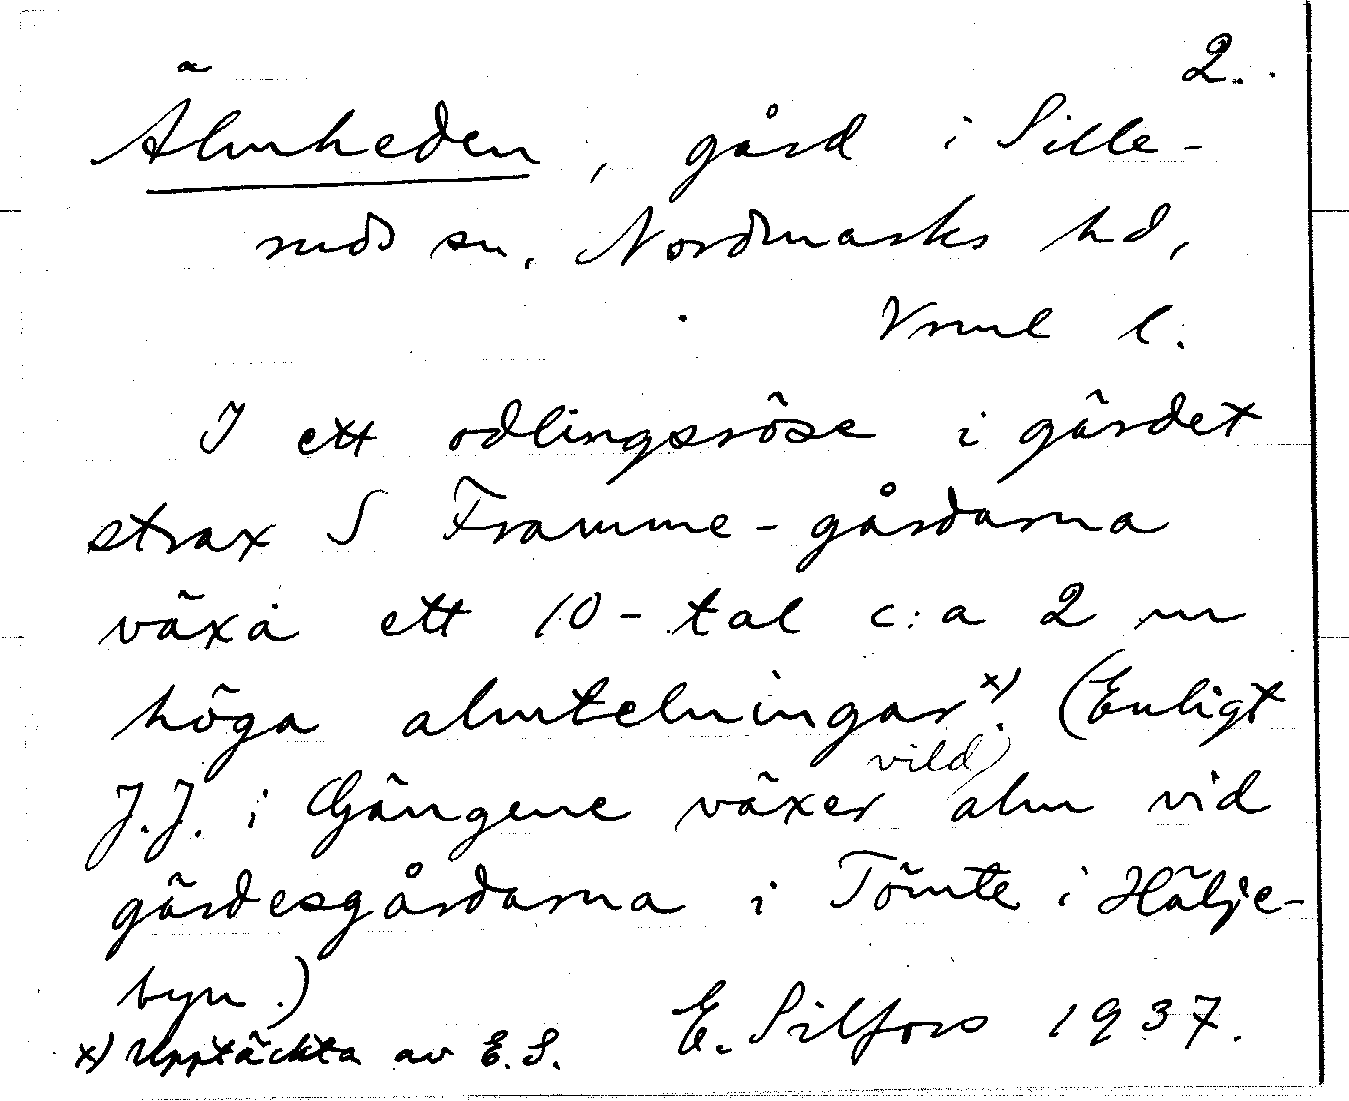 2.
Älmheden, gård i Sille-
ruds sn, Nordmarks hd,
Vrml l.
I ett odlingsröse i gärdet
strax S Framme-gårdarna
växa ett 10-tal c:a 2 m
höga almtelningar x). (Enligt
vild
J.J. i Gängene växer alm vid
gärdesgårdarna i Tömte i Hälje-
byn.)
E. Silfors 1937.
x) Upptäckta av E. S.